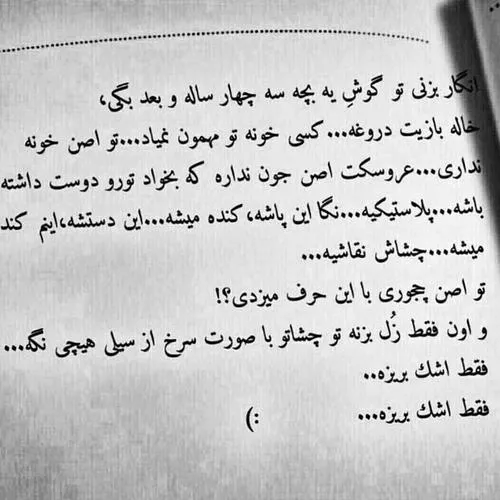 انگار بزنی تو گوشِ یه بچه سه چهار ساله و بعد بگی،
خاله بازیت دروغه...کسی خونه تو مهمون نمیاد...تو اصن خونه
نداری...عروسکت اصن جون نداره که بخواد تورو دوست داشته
باشه...پلاستیکیه...نگا این پاشه،کنده میشه...این دستشه،اینم کند
میشه...چشاش نقاشیه...
تو اصن چجوری با این حرف میزدی؟!
و اون فقط زُل بزنه تو چشاتو با صورت سرخ از سیلی هیچی نگه...
فقط اشك بریزه..
فقط اشك بریزه... :)